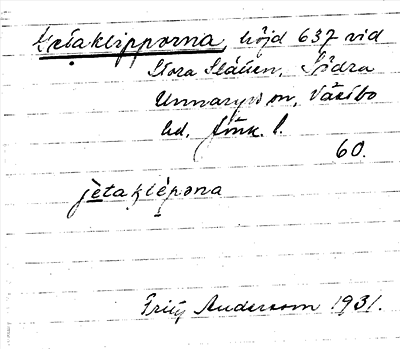 Getaklipporna, höjd 637 vid
Stora Slätten, Södra
Unnaryd sn, Västbo
hd. Jönk. l.
60.
jètaklépona
Fritz Anderson 1931.